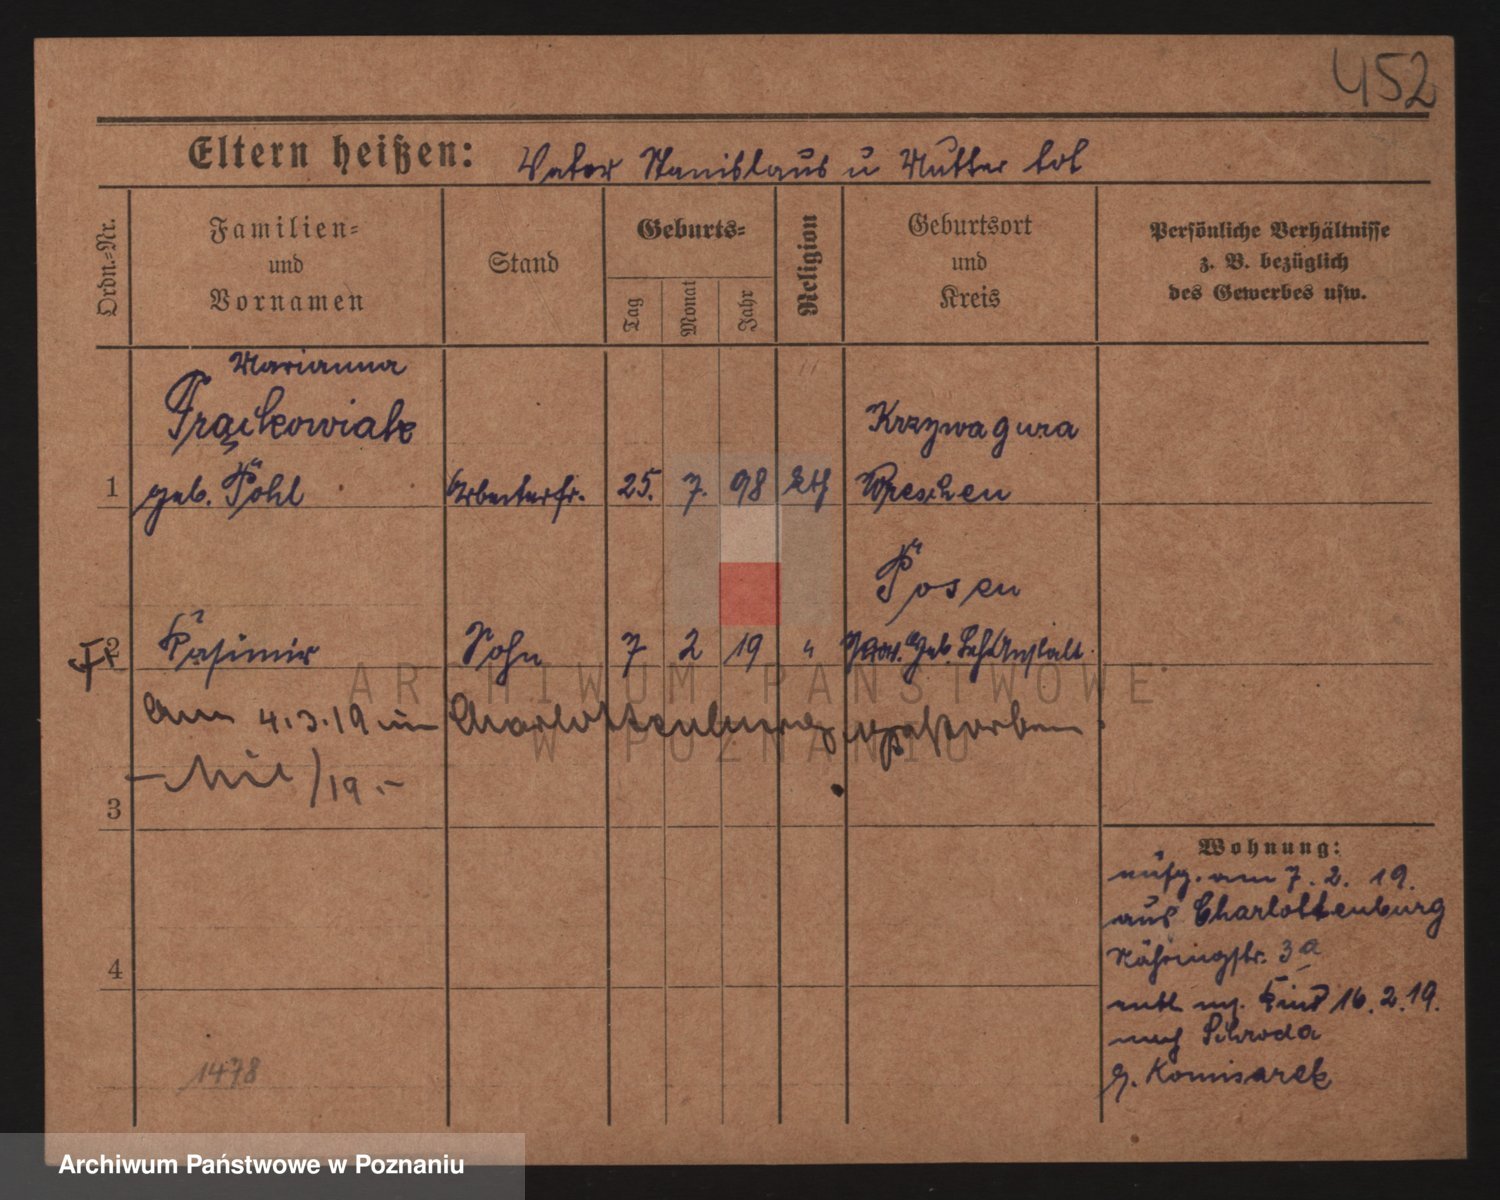 452
Eltern heißen: Vater Stanislaus u Mutter tot
Ordn.-Nr.
Familien-
und
Vornamen
Stand
Geburts-
Tag
Monat
Jahr
Religion
Geburtsort
und
Kreis
Persönliche Verhältnisse
z. B. bezüglich
des Gewerbes usw.
Marianna
Frąckowiak
Krzywagura
1 geb. Pohl Arbeiterfr. 25. 7. 98 kth Wreschen
Posen
2 Kasimir Sohn 7 2 19 " Prov. Heb. Leh Anstalt
Am 4.3.19 in Charlottenburg verstorben
/19.-
3
4
Wohnung:
aufg. am 7. 2. 19.
aus Charlottenburg
Nähringstr. 3a
entl m. Kind 16.2.19.
nach Schroda
b. Komisarek
1478
ARCHIWUM PAŃSTWOWE
W POZNANIU
Archiwum Państwowe w Poznaniu